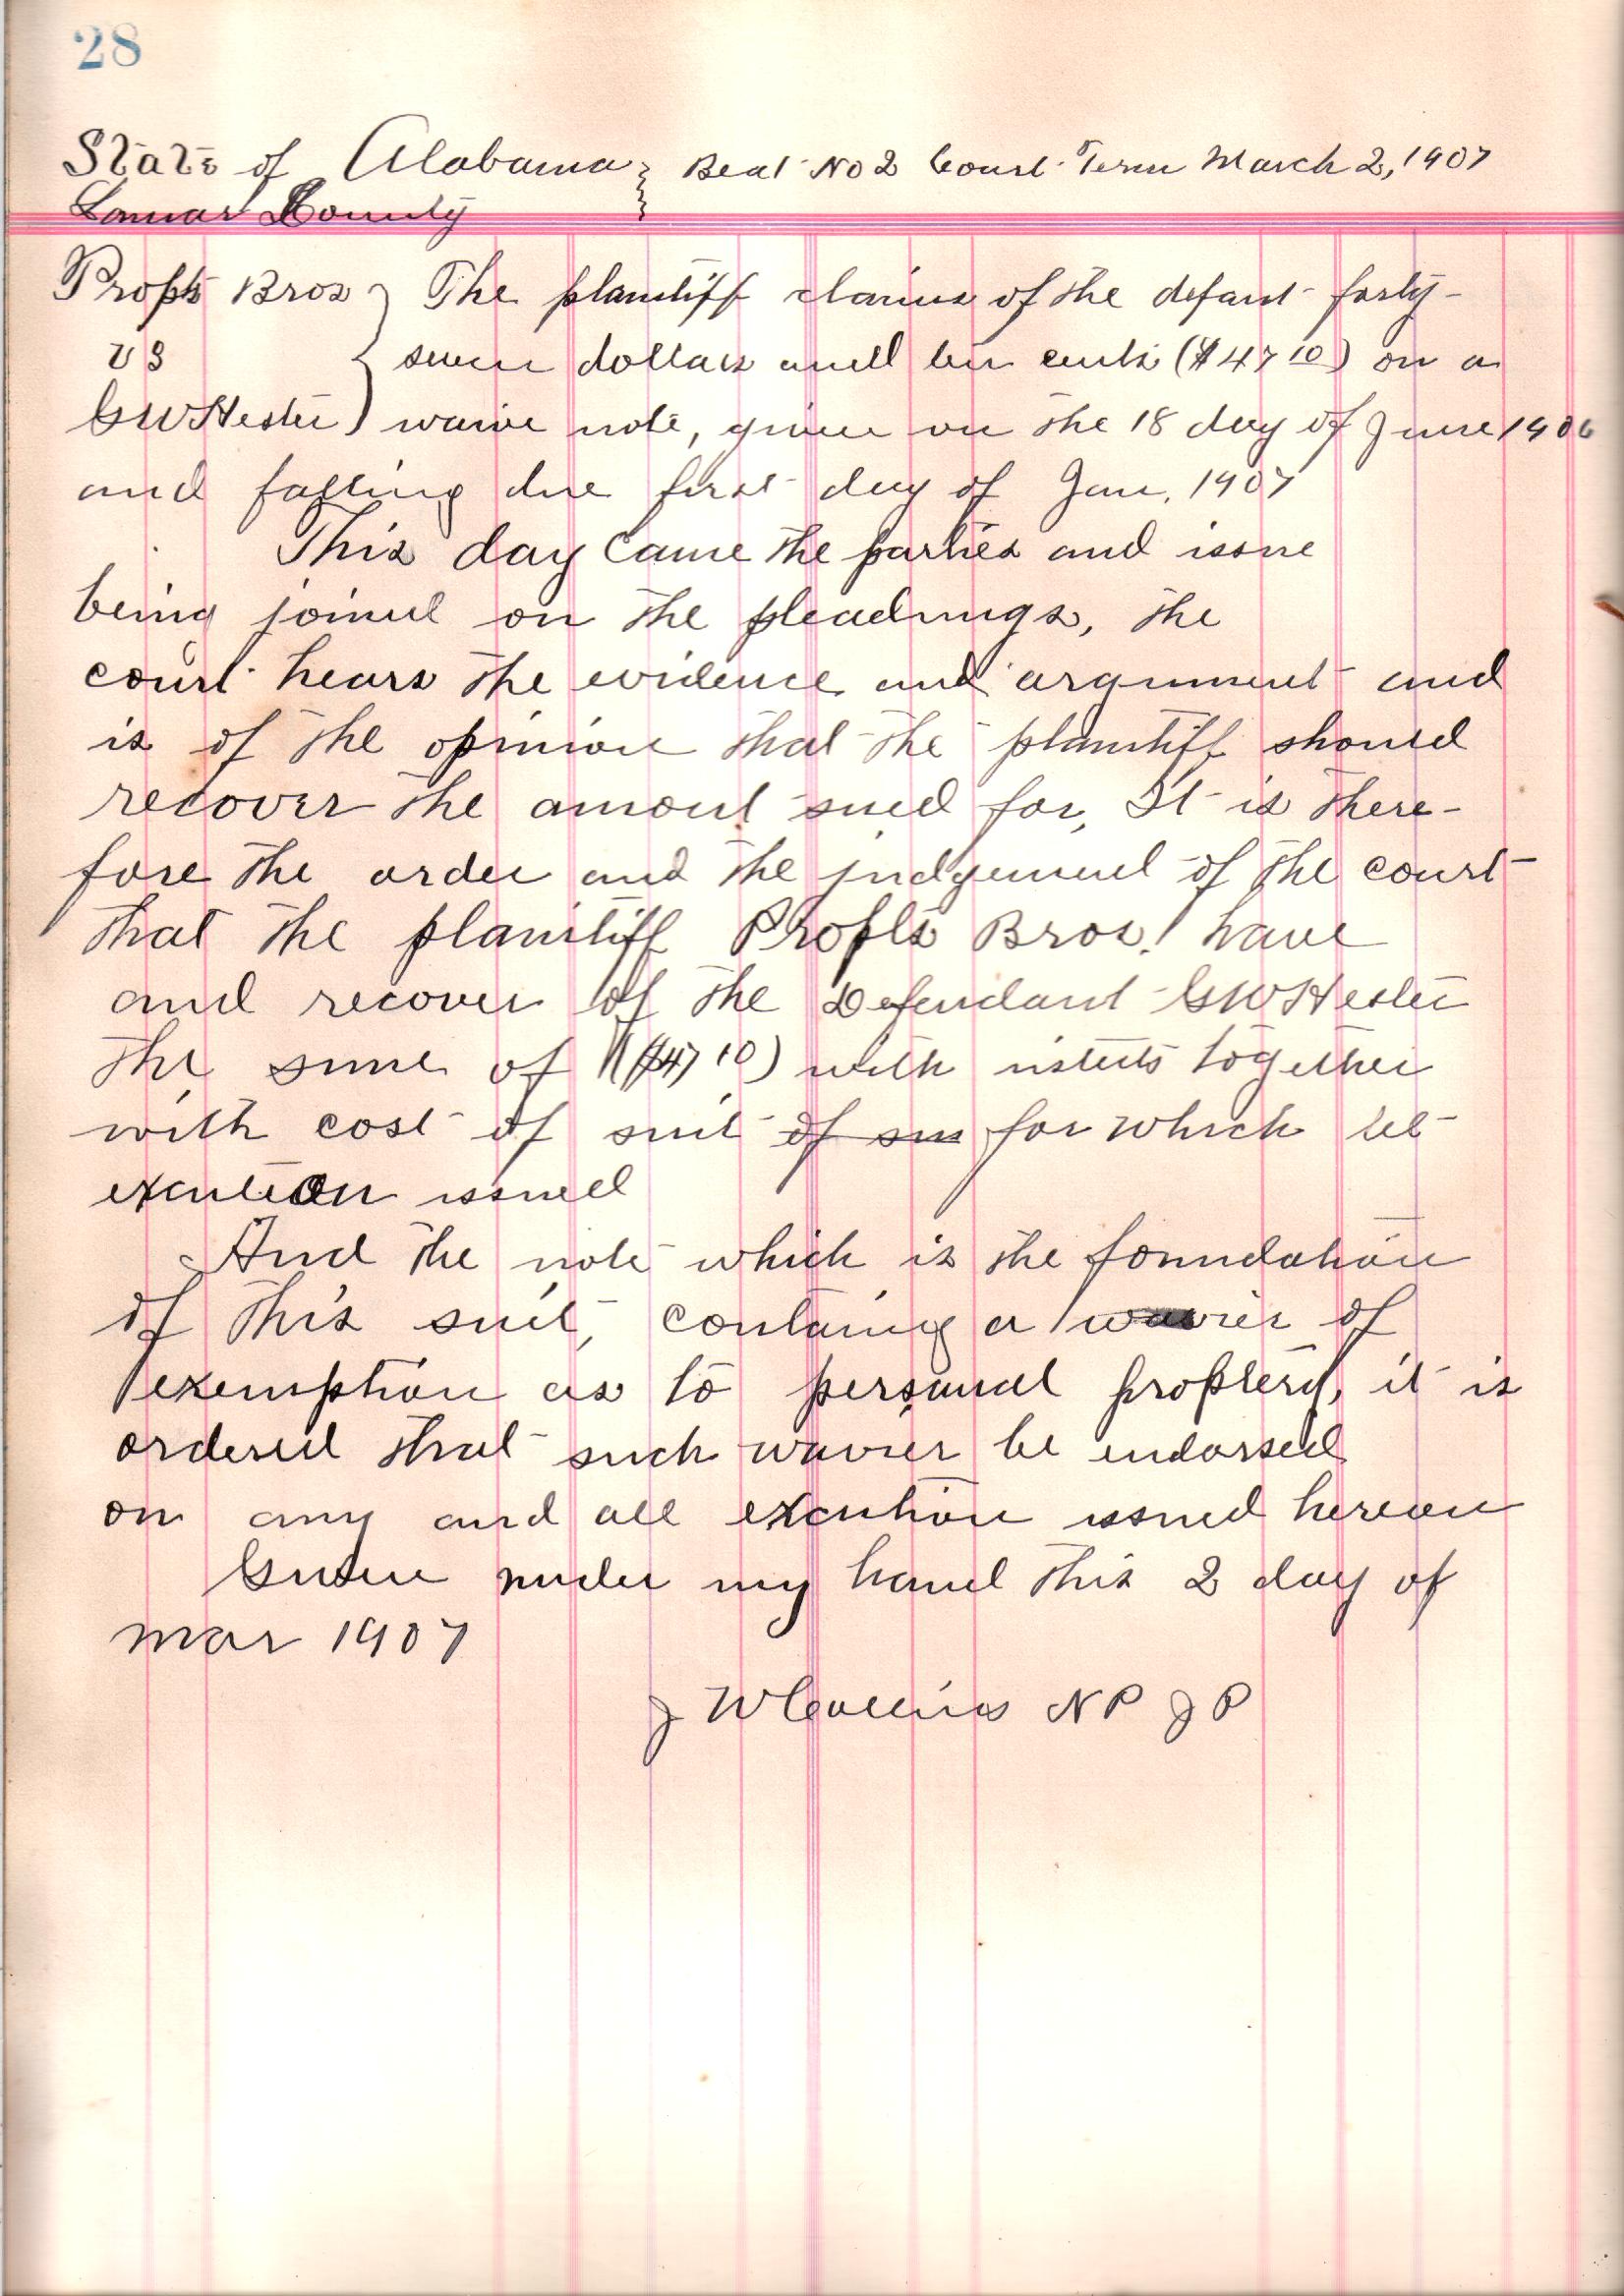 28
State of Alabama } Beat No 2 Court Term March 2, 1907
Lamar County
Propts Bros } The plantiff claims of the defant forty-
vs } seven dollars and ten cents ($47 10) on a
GW Hester ) waive note, given on the 18 day of June 1906
and falling due first day of Jan, 1907
This day came the parties and issue
being joined on the pleadings, the
court hears the evidence and argument and
is of the opinion that the plantiff should
recover the amout sued for, It is there-
fore the order and the judgement of the court
that the plantiff Propts Bros. have
and recover of the Defendant GW Hester
the sum of ($47 10) with together
with cost of suit of su for which let
execution issued
And the note which is the foundation
of this suit, containg a wavier of
exemption as to personal property, it is
ordered that such wavier be endorsed
on any and all execution issued hereon
Given under my hand this 2 day of
Mar 1907
J W Collins NP JP